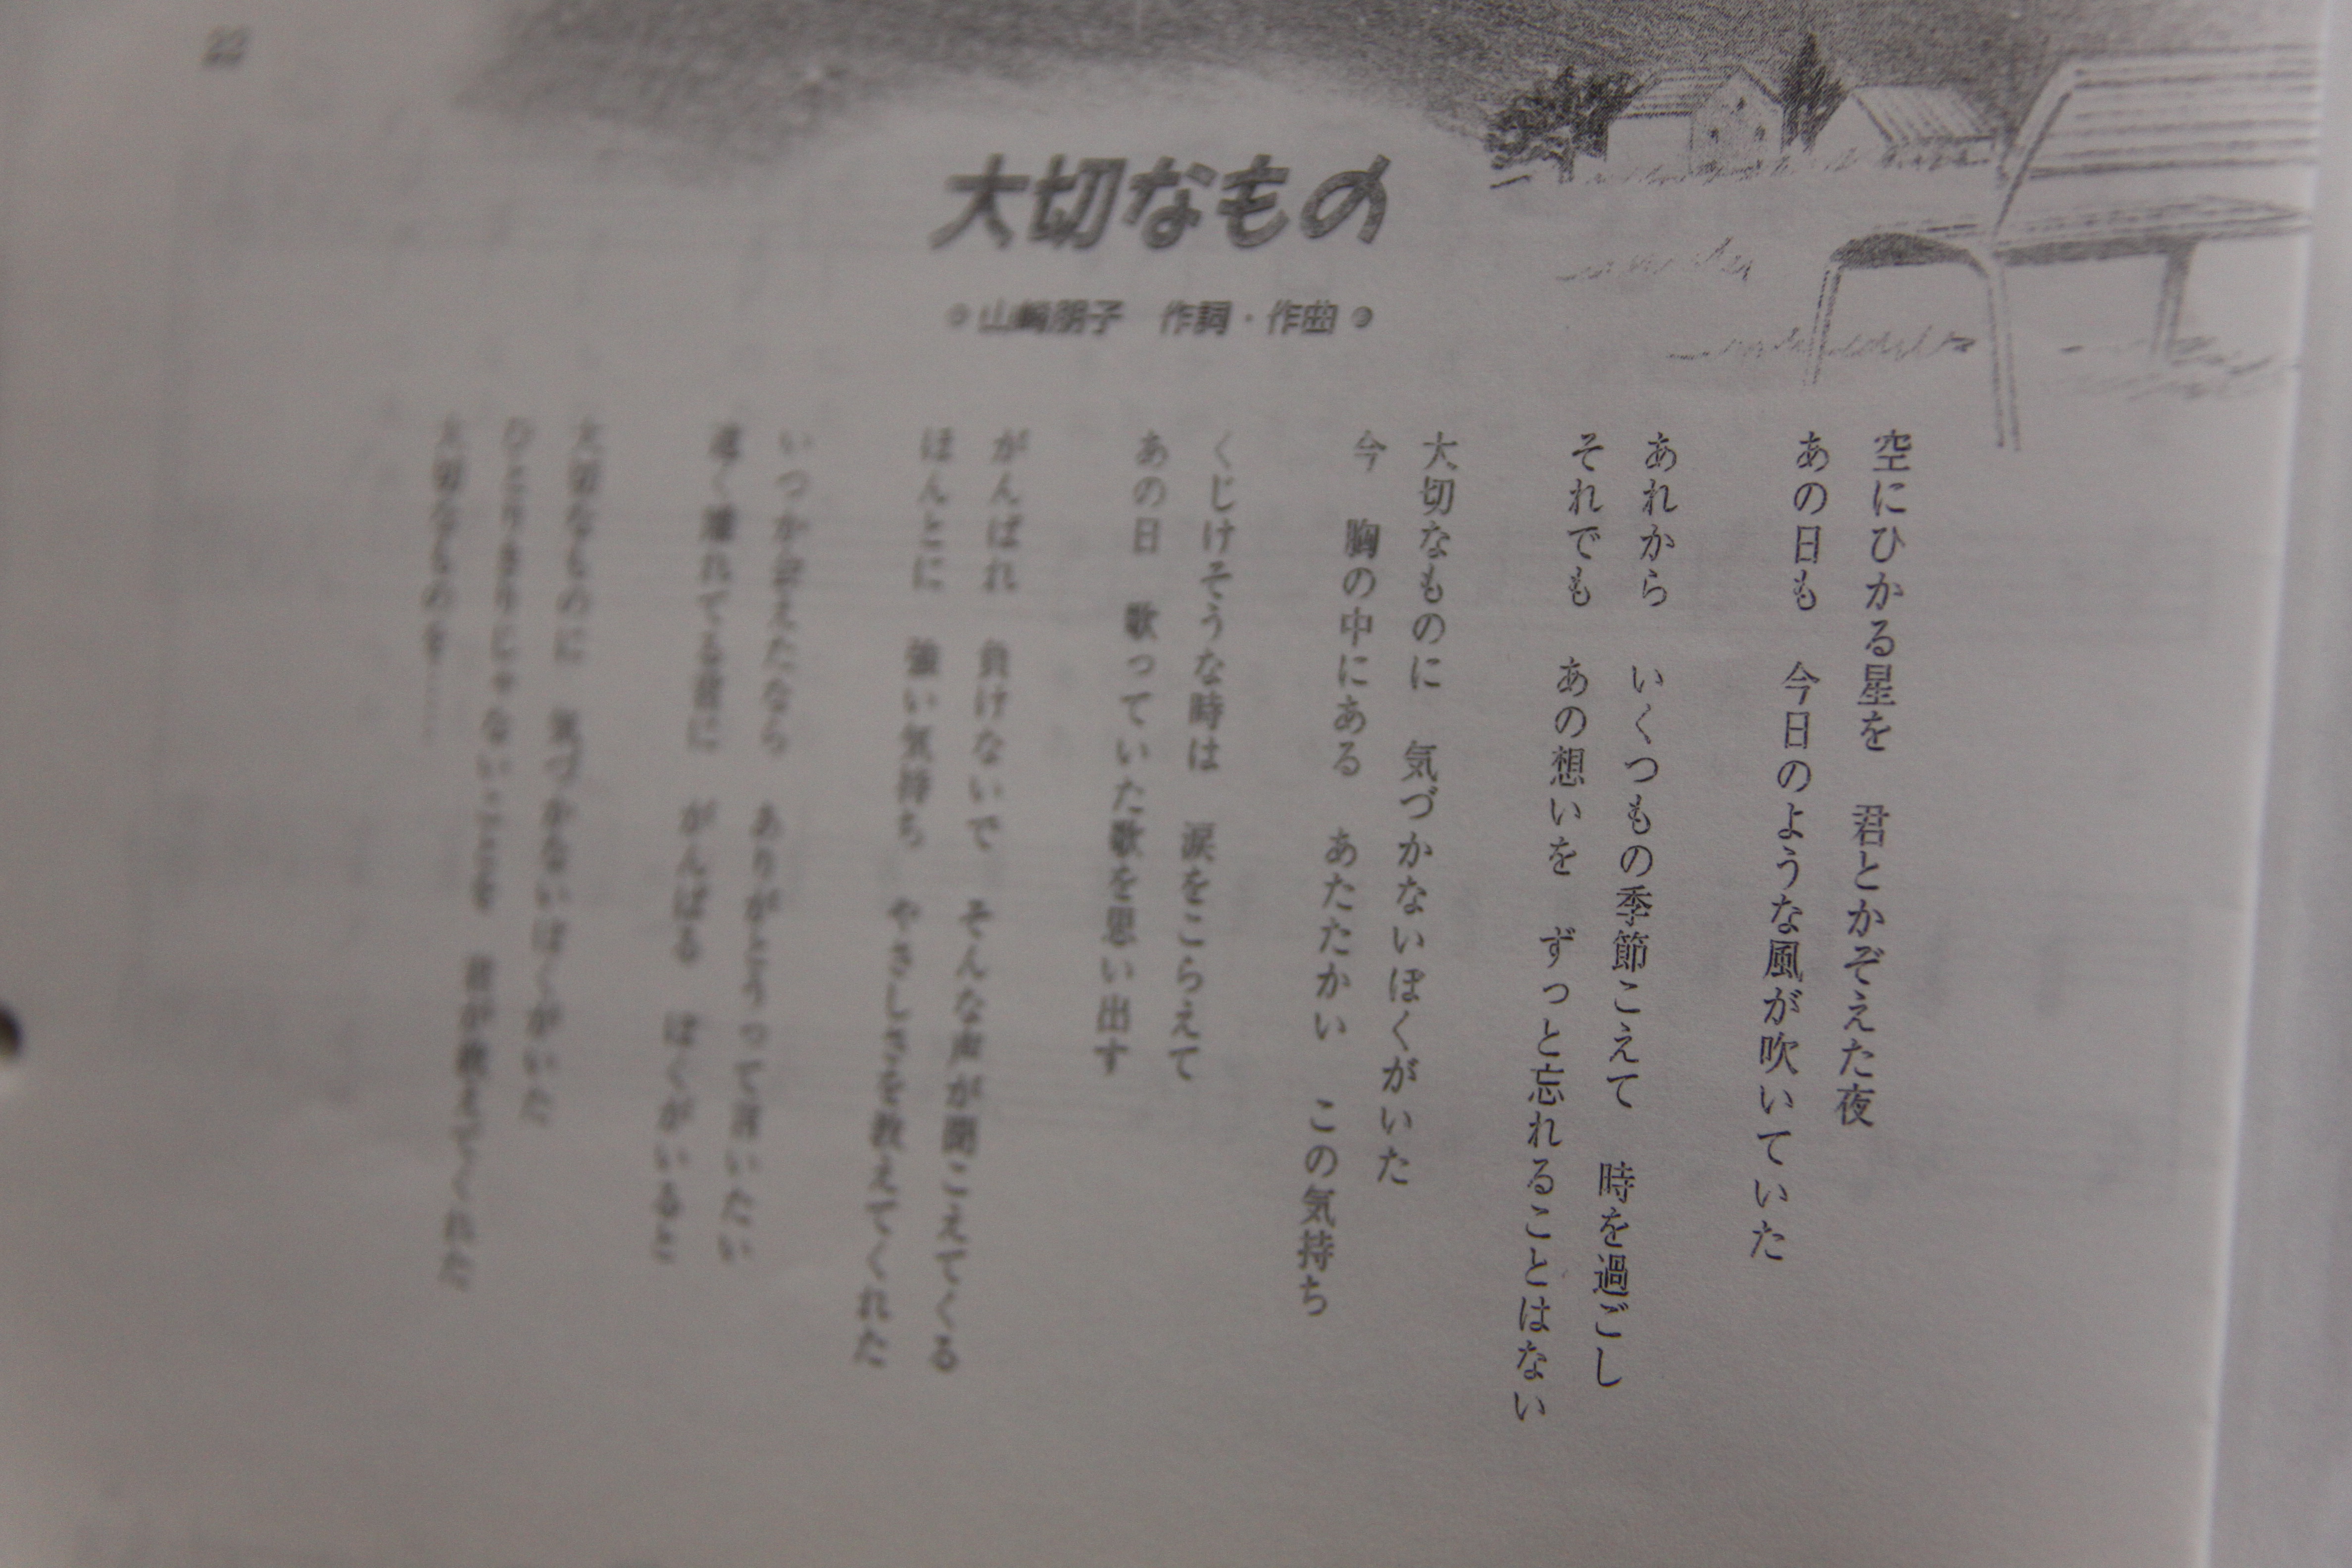 22
大切なもの
山崎朋子　作詞・作曲
空にひかる星を　君とかぞえた夜
あの日も　今日のような風が吹いていた
あれから　いくつもの季節こえて　時を過ごし
それでも　あの想いを　ずっと忘れることはない
大切なものに　気づかないぼくがいた
今　胸の中にある　あたたかい　この気持ち
くじけそうな時は　涙をこらえて
あの日　歌っていた歌を思い出す
がんばれ　負けないで　そんな声が聞こえてくる
ほんとに　強い気持ち　やさしさを教えてくれた
いつか会えたなら　ありがとうって言いたい
遠く離れてる君に　がんばる　ぼくがいると
大切なものに　気づかないぼくがいた
ひとりきりじゃないことを　君が教えてくれた
大切なものを……